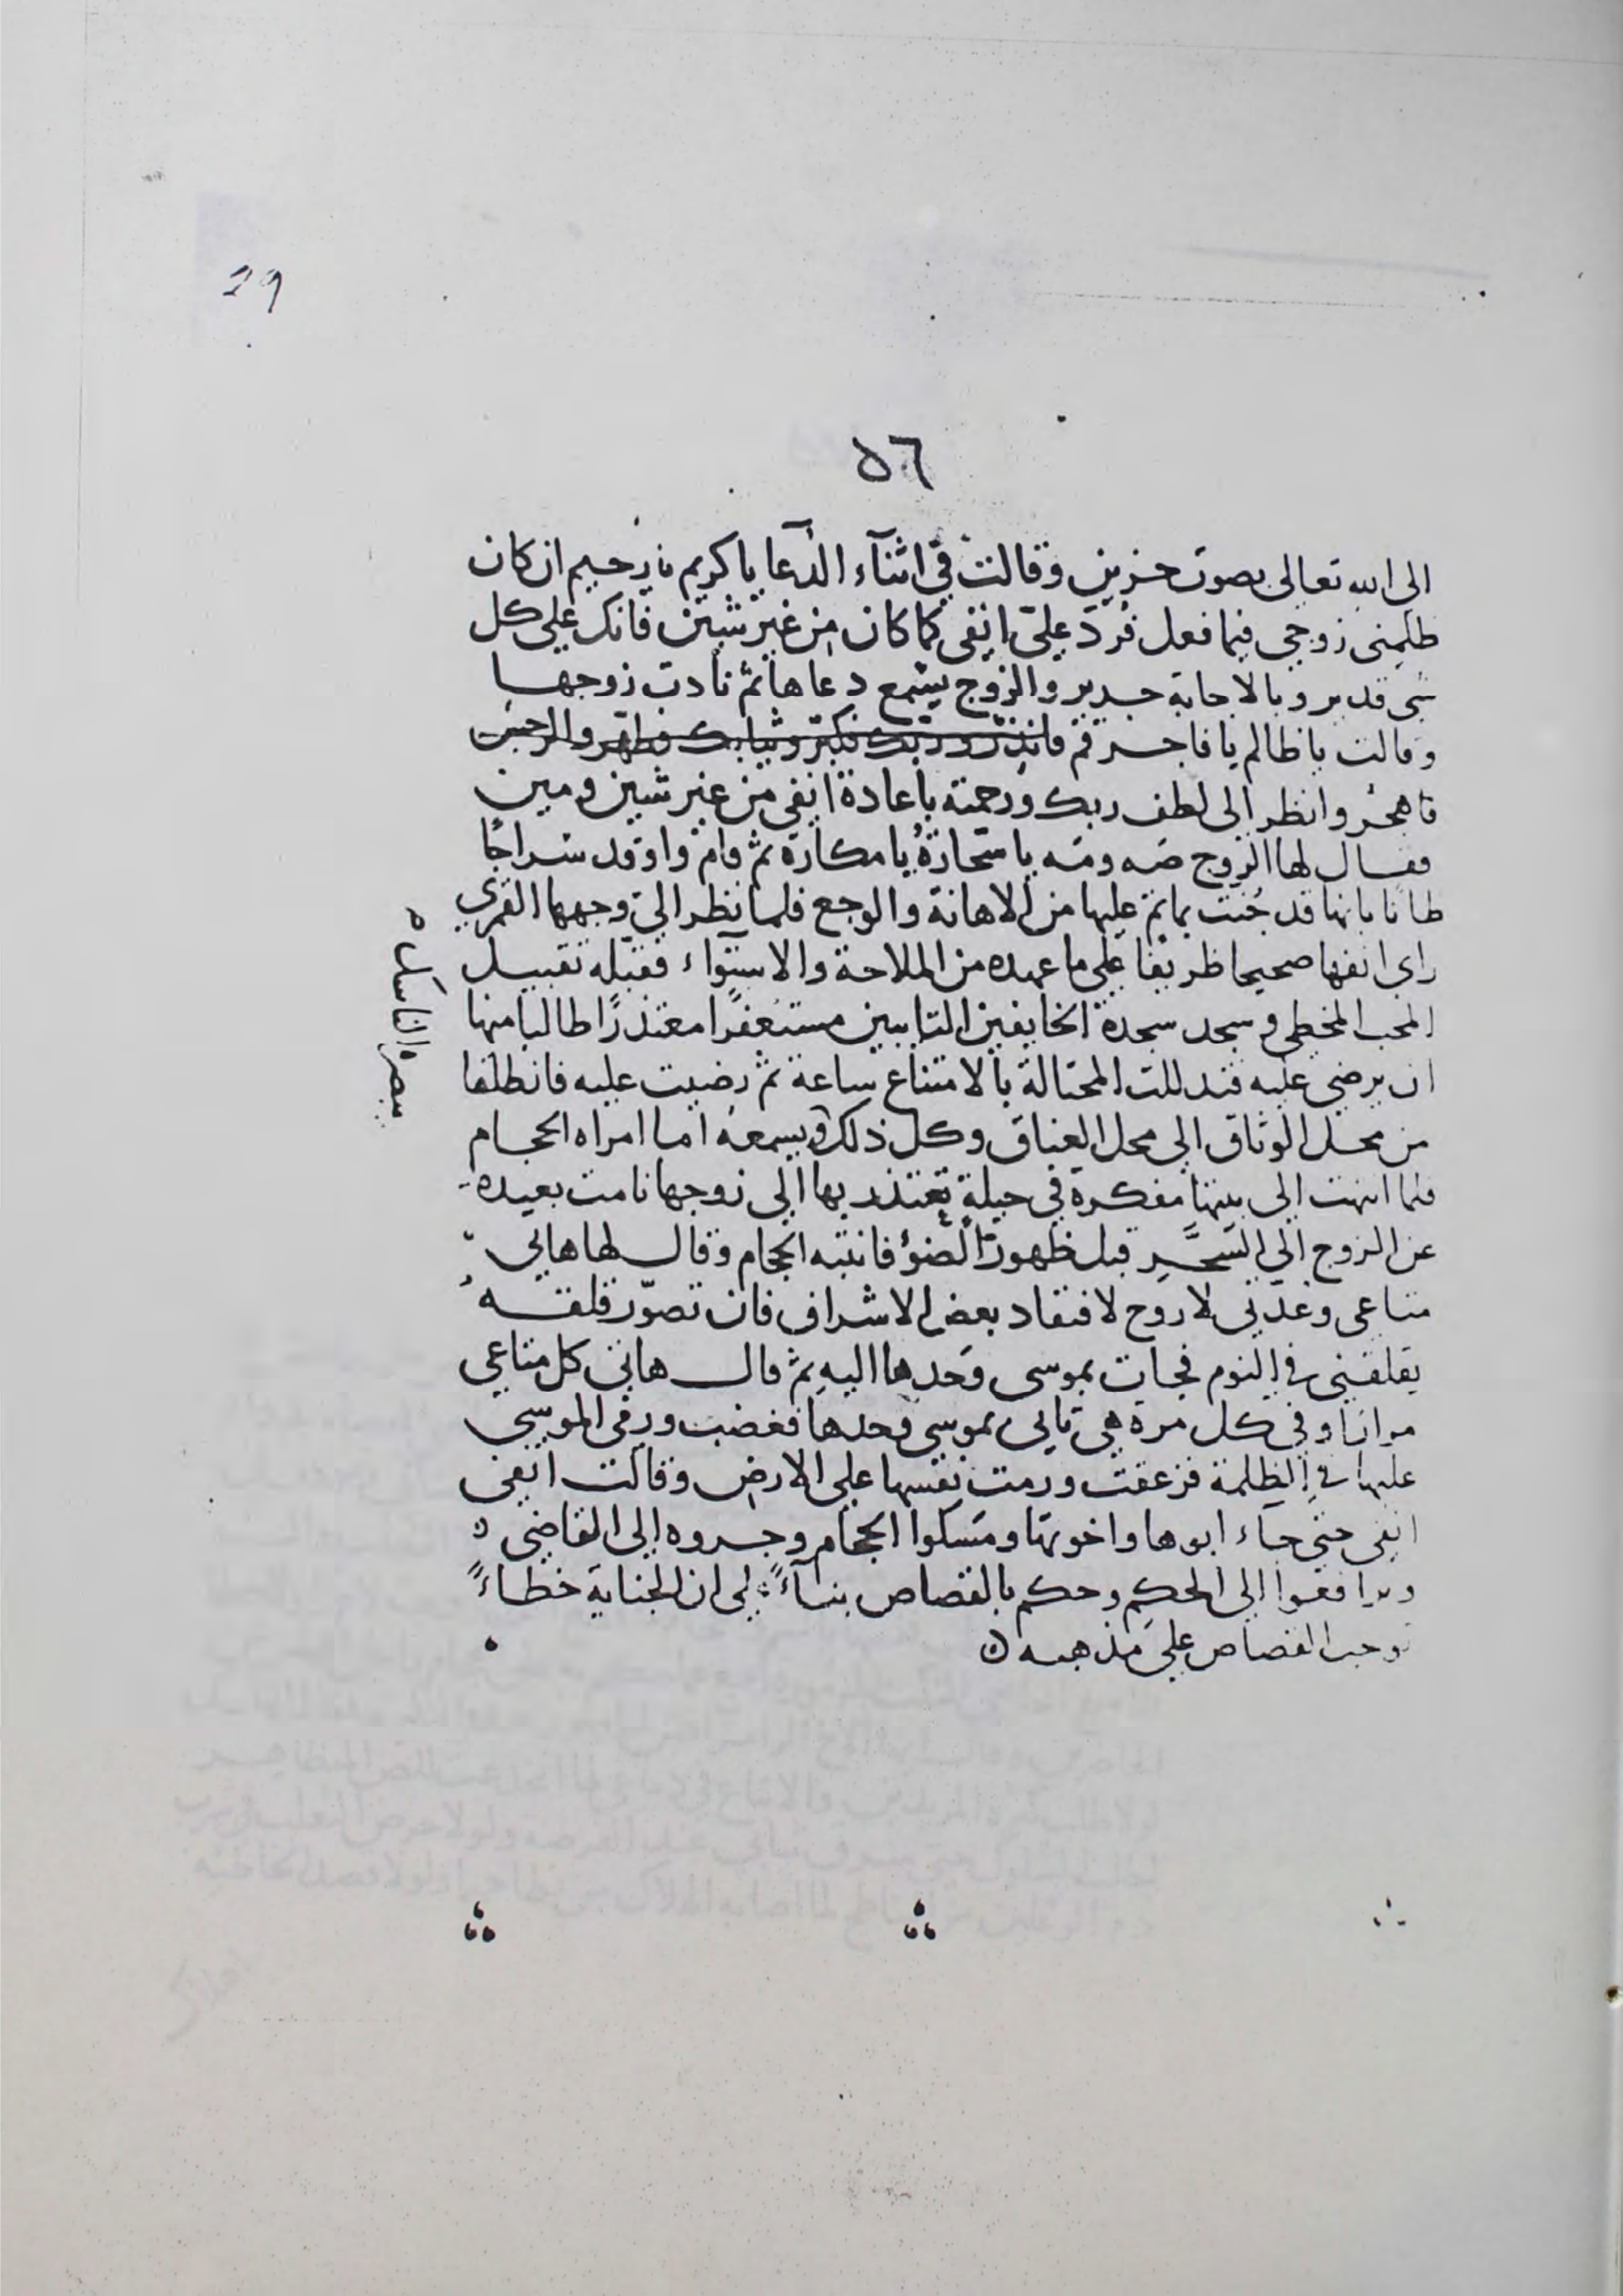 29
٥٦
الى الله تعالى بصوت حزين وقالت في اثنآء الدعا يا كريم يا رحيم ان كان
ظلمنى زوجى فيما فعل فرد علىّ انفى كما كان من غير شين فانك على كل
شى قدير وبالاجابة جدير والزوج يسمع دعاها ثم نادت زوجها
وقالت يا ظالم يا فاجر قم فانذر وربك فكبر وثيابك فطهر والرجز
فاهجر وانظر الى لطف ربك ورحمته باعادة انفى من غير شين ومين
فقال لها الزوج صه ومه يا سحارة يا مكارة ثم قام واوقد سراجًا
ظانا بانها قد جُنت بما تم عليها من الاهانة والوجع فلما نظر الى وجهها القمرى
راى انفها صحيحا ظريفا على ما عهده من الملاحة والاستوآء فقبله تقبيل
المحب المخطى وسجد سجدة الخايفين التايبين مستغفرًا معتذرًا طالبا منها
ان يرضى عليه فتدللت المحتالة بالامتناع ساعة ثم رضيت عليه فانطلقا
من محل الوثاق الى محل العناق وكل ذلك ويسمعه اما امراه الحجام
فلما انهت الى بيتها مفكرة في حيلة تعتذر بها الى زوجها نامت بعيده
عن الزوج الى السَّحر قبل ظهور الضوء فانتبه الحجام وقال لها هاتى
متاعى وعدتى لاروح لافتقاد بعض الاشراف فان تصوّر قلقه
يقلقنى في النوم فجات بموسى وحدها اليه ثم قال هاتى كل متاعى
مرارا وفى كل مرة هى تاتى بموسى وحدها فغضب ورمى الموسى
عليها في الظلمة فزعقت ورمت نفسها على الارض وقالت انفى
انفى حتى جآء ابوها واخوتها ومسكوا الحجام وجروه الى القاضى
وترافعوا الى الحكم وحكم بالقصاص بنآءً على ان الجناية خطاءً
توجب القصاص على مذهبه